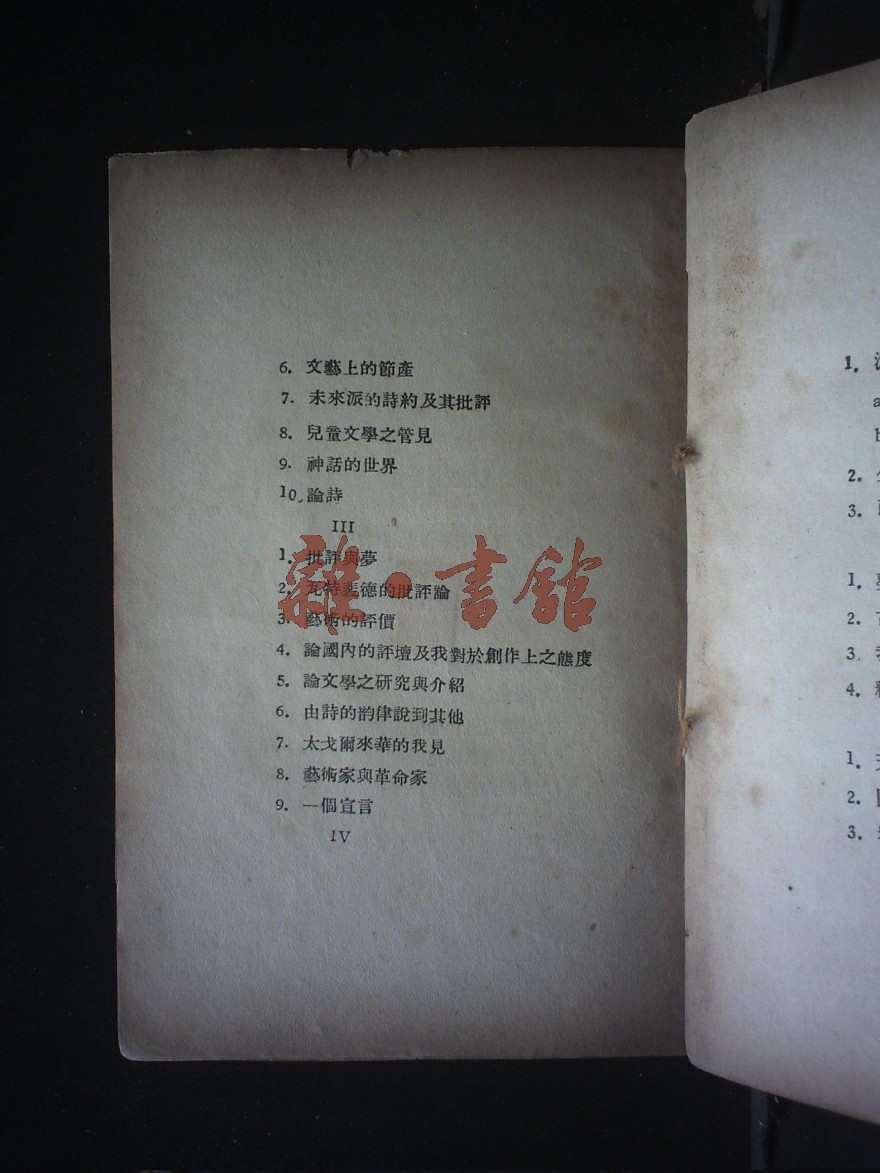 6. 文藝上的節產
7. 未來派的詩約及其批評
8. 兒童文學之管見
9. 神話的世界
10. 論詩
III
1. 批評與夢
2. 瓦特裴德的批評論
3. 藝術的評價
4. 論國內的評壇及我對於創作上之態度
5. 論文學之研究與介紹
6. 由詩的韵律說到其他
7. 太戈爾來華的我見
8. 藝術家與革命家
9. 一個宣言
IV
雜·書館
1.
2.
3.
1.
2.
3.
4.
1.
2.
3.